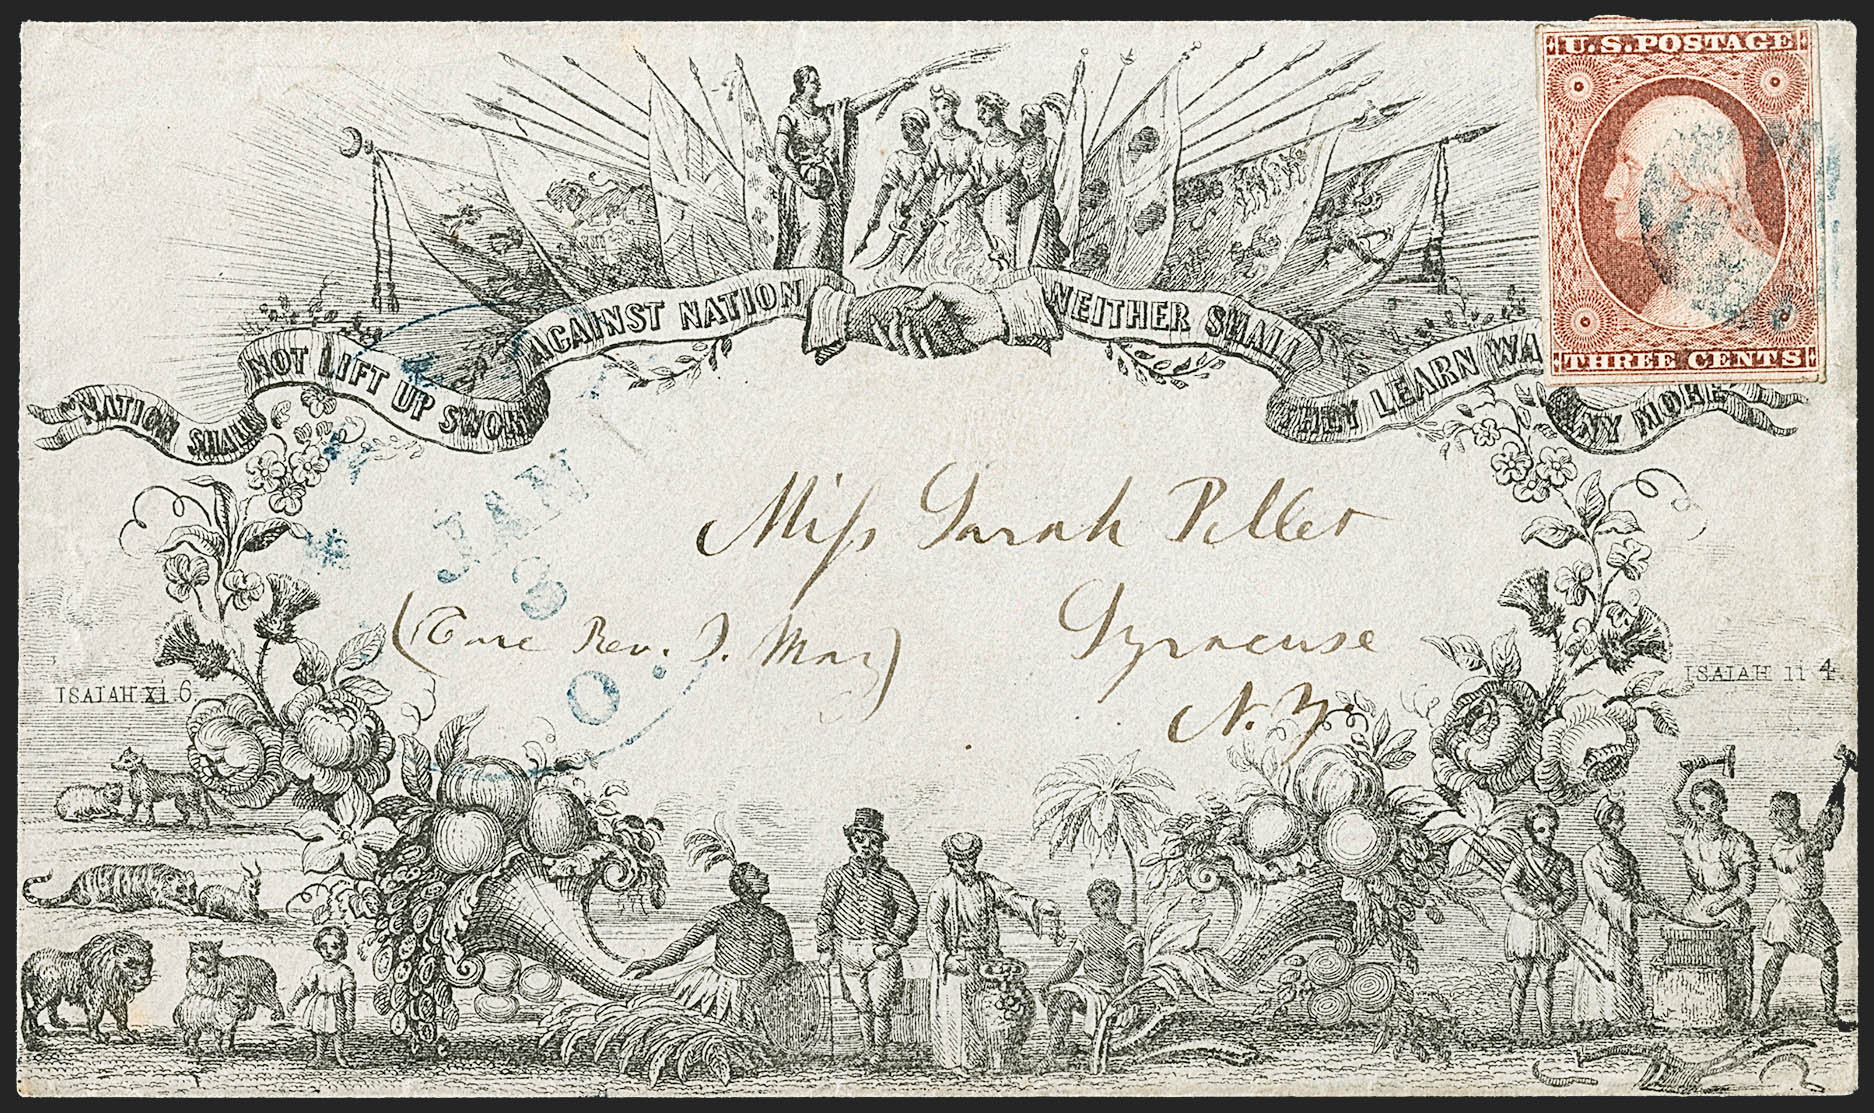 U.S.POSTAGE
THREE CENTS
NATION SHALL NOT LIFT UP SWORD AGAINST NATION NEITHER SHALL THEY LEARN WA NY MORE
JAN
3
O.
Miss Sarah Pellet
(Care Rev. S. May)
Syracuse
N.Y.
ISAIAH xi 6
ISAIAH ii 4